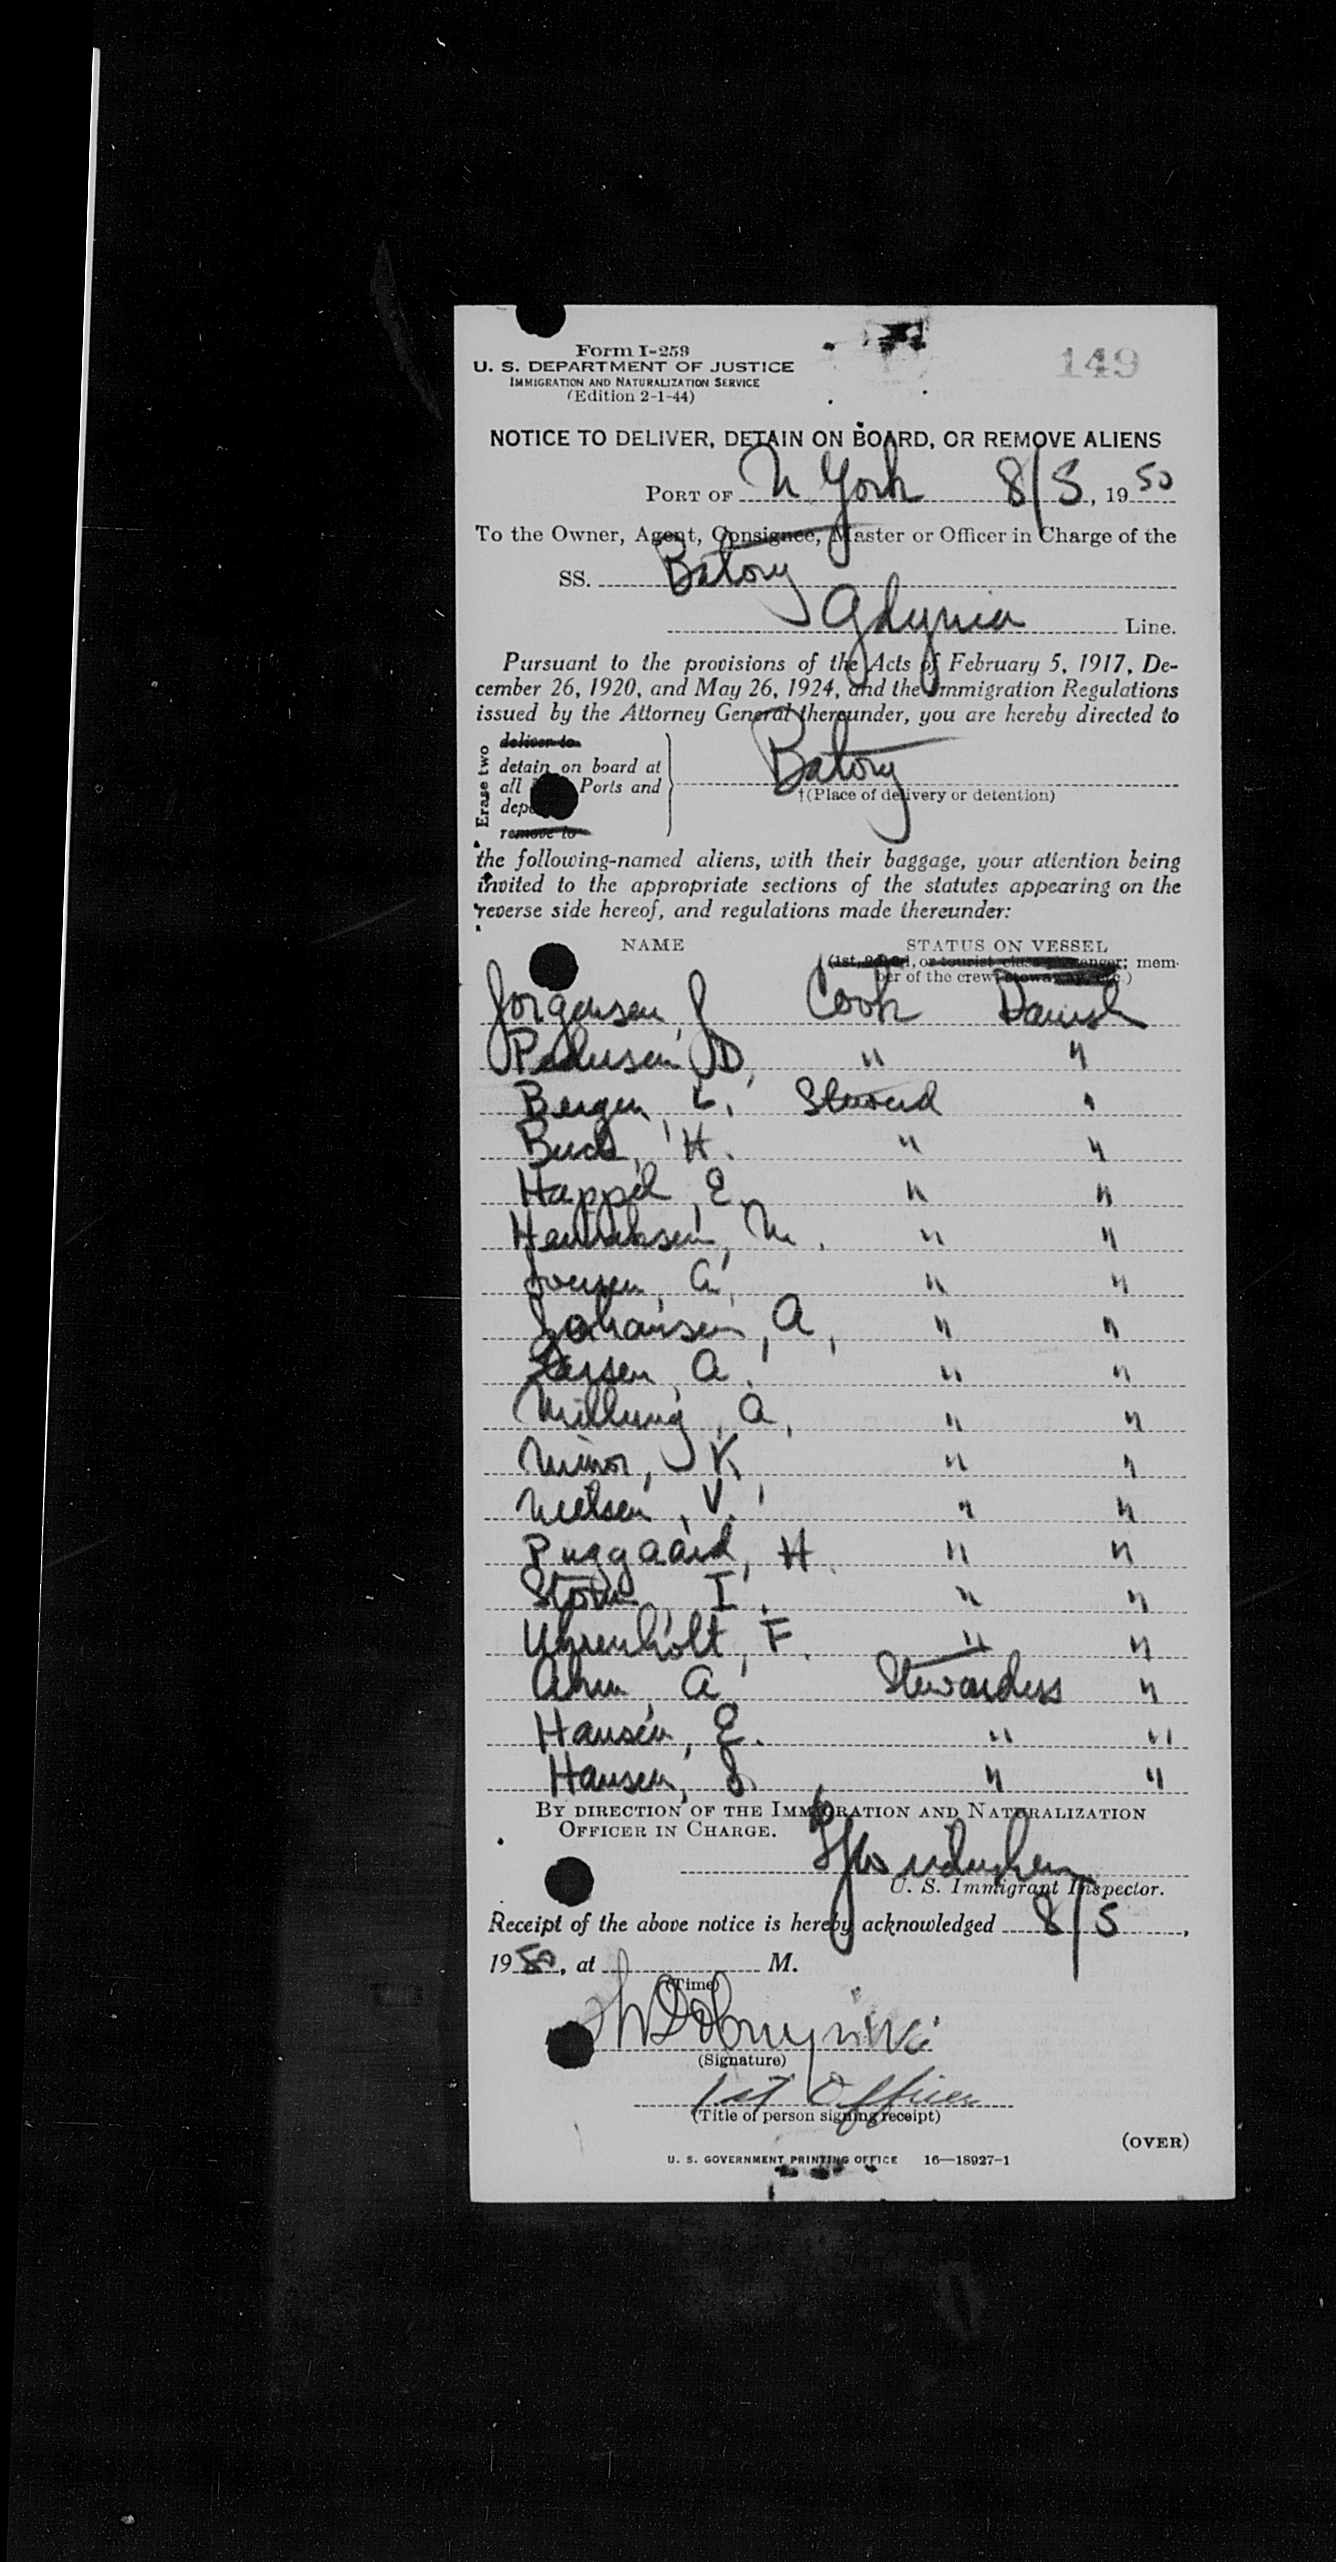 Form I-259
U. S. DEPARTMENT OF JUSTICE
IMMIGRATION AND NATURALIZATION SERVICE
(Edition 2-1-44)
149
NOTICE TO DELIVER, DETAIN ON BOARD, OR REMOVE ALIENS
PORT OF N York 8/5, 1950
To the Owner, Agent, Consignee, Master or Officer in Charge of the
SS. Batory
Gdynia Line.
Pursuant to the provisions of the Acts of February 5, 1917, De-
cember 26, 1920, and May 26, 1924, and the Immigration Regulations
issued by the Attorney General thereunder, you are hereby directed to
Erase two
deliver to
detain on board at
all Ports and
remove to
Batory
†(Place of delivery or detention)
the following-named aliens, with their baggage, your attention being
invited to the appropriate sections of the statutes appearing on the
reverse side hereof, and regulations made thereunder:
NAME STATUS ON VESSEL
(1st, 2d, 3d, or tourist class passenger; mem-
ber of the crew, stowaway, etc.)
Jorgensen, J Cook Danish
Pedersen, D, " "
Bergen, L, Steward "
Buck, H. " "
Happel, E. " "
Henriksen, M. " "
Iversen, A, " "
Johansen, A, " "
Larsen, A. " "
Millung, A, " "
Minor, K, " "
Nielsen, V. " "
Puggaard, H. " "
Storm I. " "
Uhrenholt, F. " "
A Stewardess "
Hansen, E. " "
Hansen, J. " "
BY DIRECTION OF THE IMMIGRATION AND NATURALIZATION
OFFICER IN CHARGE.
U. S. Immigrant Inspector.
Receipt of the above notice is hereby acknowledged 8/5,
1950, at M.
(Time)
(Signature)
1st Officer
(Title of person signing receipt)
(OVER)
U. S. GOVERNMENT PRINTING OFFICE 16—18927-1